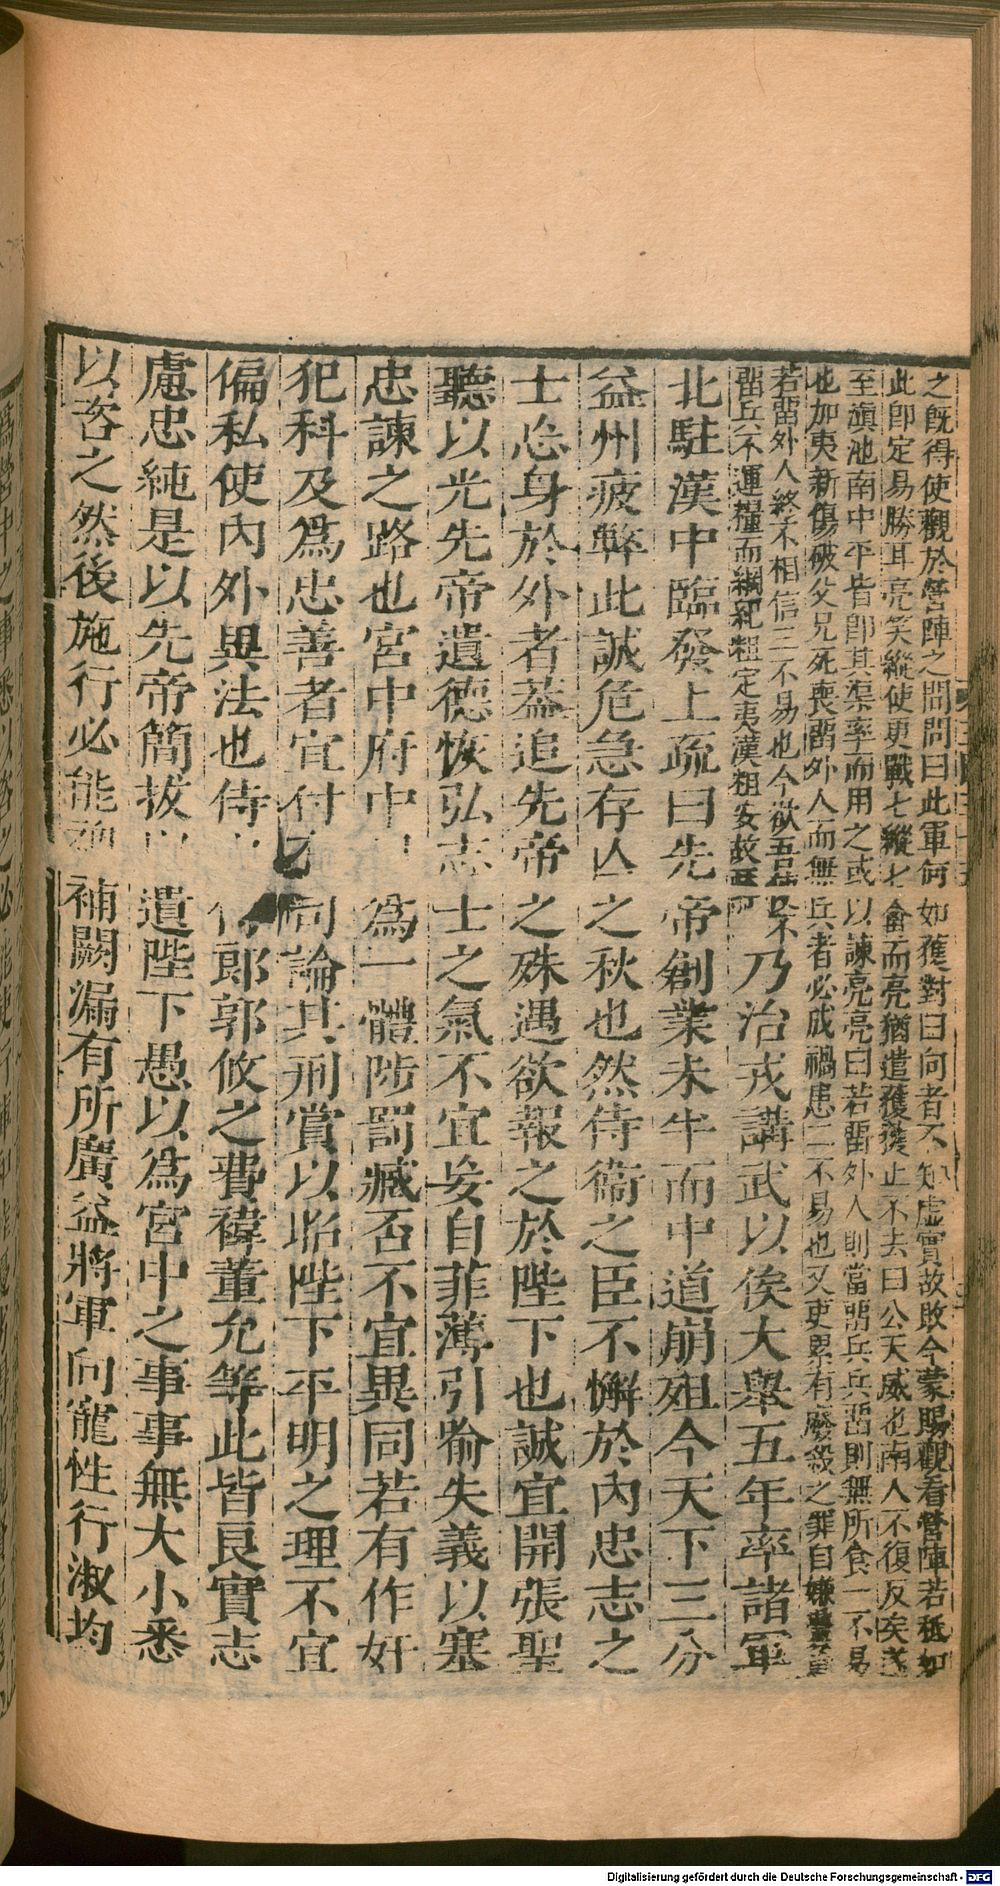 之既得使觀於營陣之間問曰此軍何如獲對曰向者不知虛實故敗今蒙賜觀看營陣若秪如
此卽定易勝耳亮笑縱使更戰七縱七禽而亮猶遣獲獲止不去曰公天威也南人不復反矣遂
至滇池南中平皆卽其渠率而用之或以諫亮亮曰若畱外人則當畱兵兵畱則無所食一不易
也加夷新傷破父兄死喪畱外人而無兵者必成禍患二不易也又吏累有廢殺之罪自嫌釁重
若畱外人終不相信三不易也今欲吾使
畱兵不運糧而綱紀粗定夷漢粗安故耳
乃治戎講武以俟大舉五年率諸軍
北駐漢中臨發上疏曰先帝創業未半而中道崩殂今天下三分
益州疲弊此誠危急存亾之秋也然侍衞之臣不懈於內忠志之
士忘身於外者蓋追先帝之殊遇欲報之於陛下也誠宜開張聖
聽以光先帝遺德恢弘志士之氣不宜妄自菲薄引喻失義以塞
忠諫之路也宮中府中爲一體陟罰臧否不宜異同若有作奸
犯科及爲忠善者宜付司論其刑賞以昭陛下平明之理不宜
偏私使內外異法也侍郎郭攸之費禕董允等此皆良實志
慮忠純是以先帝簡拔遺陛下愚以爲宮中之事事無大小悉
以咨之然後施行必能補闕漏有所廣益將軍向寵性行淑均